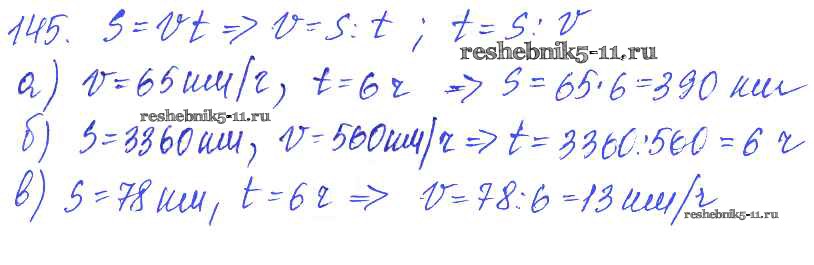 145. S = vt => v = S : t ; t = S : v
reshebnik5-11.ru
а) v = 65 км/ч, t = 6 ч => S = 65 · 6 = 390 км
reshebnik5-11.ru
б) S = 3360 км, v = 560 км/ч => t = 3360 : 560 = 6 ч
в) S = 78 км, t = 6 ч => v = 78 : 6 = 13 км/ч
reshebnik5-11.ru